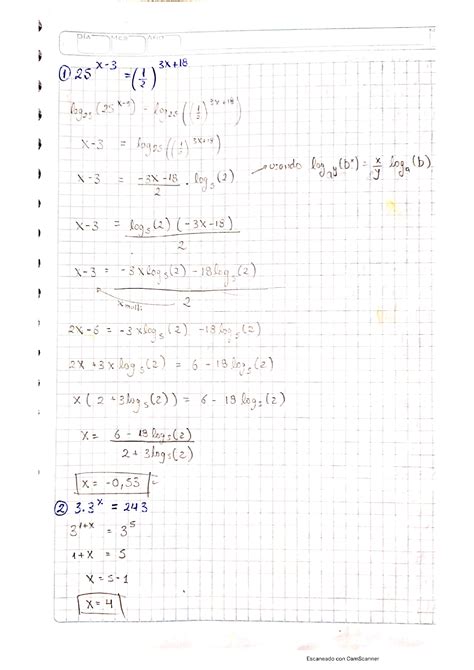 DIA MES AÑO
① 25^(x-3) = (1/2)^(3x+18)
log₂₅ (25^(x-3)) = log₂₅ ((1/2)^(3x+18))
x-3 = log₂₅ ((1/2)^(3x+18))
x-3 = (-3x-18)/2 · log₅(2) → usando log_(a^y)(b^x) = x/y log_a(b)
x-3 = (log₅(2) (-3x-18))/2
x-3 = (-3xlog₅(2) - 18log₅(2))/2
x multi
2x-6 = -3xlog₅(2) - 18log₅(2)
2x + 3xlog₅(2) = 6 - 18log₅(2)
x (2 + 3log₅(2)) = 6 - 18log₅(2)
x = (6 - 18log₅(2))/(2 + 3log₅(2))
x = -0,53
② 3.3^x = 243
3^(1+x) = 3^5
1+x = 5
x = 5-1
x = 4
Escaneado con CamScanner